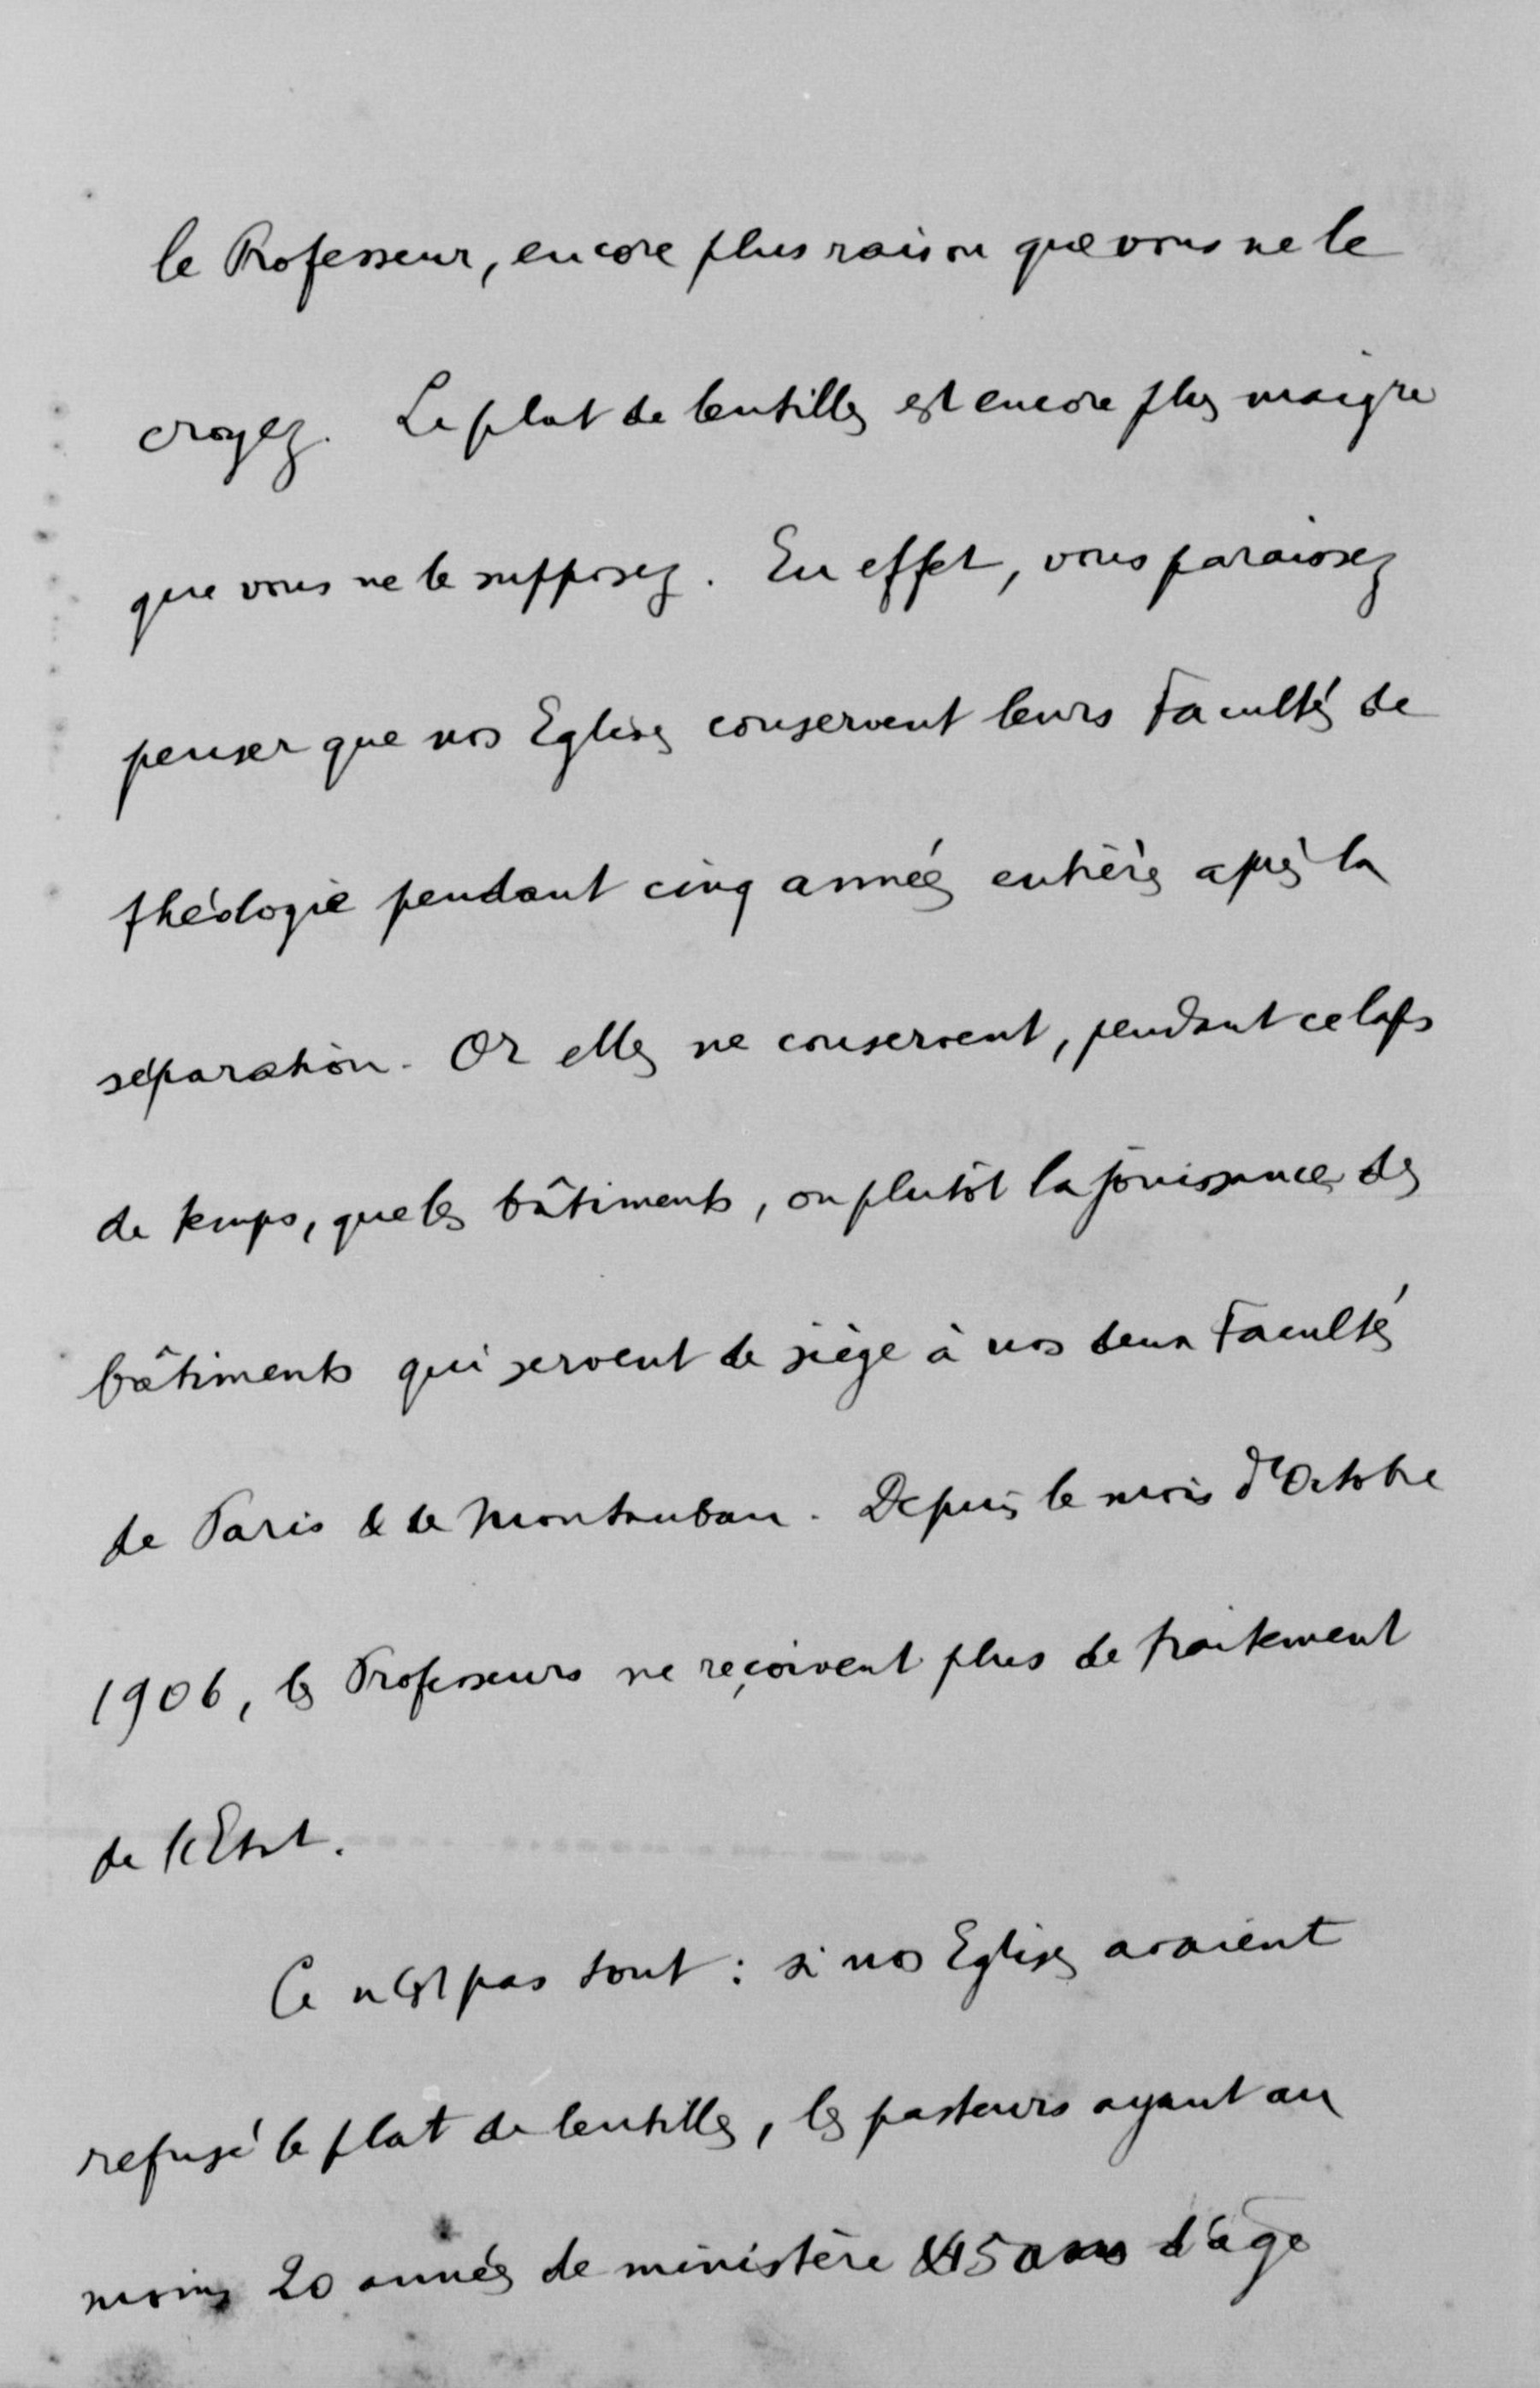 le Professeur, encore plus raison que vous ne le
croyez. Le plat de lentilles est encore plus maigre
que vous ne le supposez. En effet, vous paraissez
penser que nos Eglises conservent leurs Facultés de
théologie pendant cinq années entières après la
séparation. Or elles ne conservent, pendant ce laps
de temps, que les bâtiments, ou plutôt la jouissance des
bâtiments qui servent de siège à nos deux Facultés
de Paris & de Montauban. Depuis le mois d'Octobre
1906, les Professeurs ne reçoivent plus de traitement
de l'Etat.
Ce n'est pas tout : si nos Eglises avaient
refusé le plat de lentilles, les pasteurs ayant au
moins 20 années de ministère & 45 ans d'âge